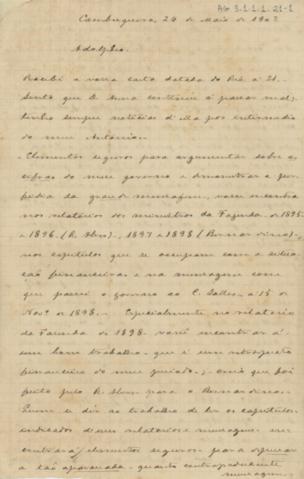 AG 3.1.1.1.21-1
Cambuquira, 24 de Maio de 1902
Adolpho.
Recebi a vossa carta datada do Rio a 21.
Sinto que D. Anna continue a passar mal;
tenho sempre noticias d'ella por intermedio
do meu Antonio.
Elementos seguros para argumentar sobre as
cifras do meu governo e demonstrar a per-
fidia da mensagem, voce encontra
nos relatorios dos ministros da Fazenda de 1895
e 1896 (R. Alves), 1897 e 1898 (Bernardino),
nos capitulos que se occupam com a situa-
ção financeira e na mensagem com
que passei o governo ao C. Salles, a 15 de
Novº de 1898. Especialmente no relatorio
da Fazenda de 1898 você encontrará
um bom trabalho, que é um retrospecto
financeiro do meu periodo, e que foi
feito pelo R. Alves para o Bernardino.
Quem se der ao trabalho de ler os capitulos
indicados d'esses relatorios e mensagem en-
contrará elementos seguros para
a tão quanto contraproducente
mensagem.